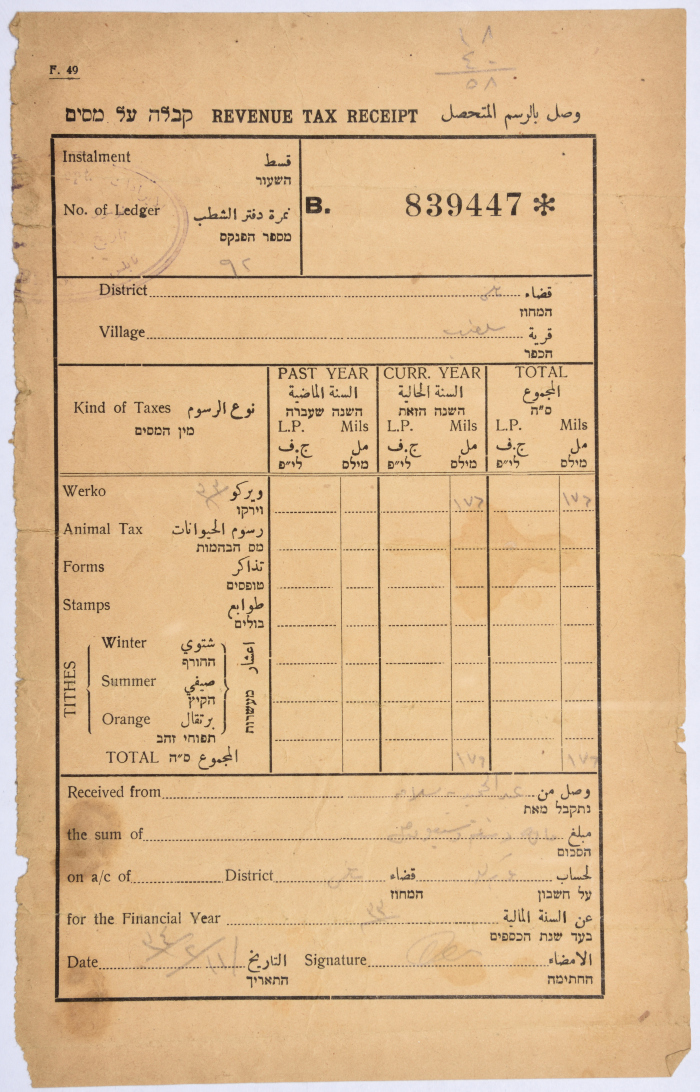 F. 49
٥٨
קבלה על מסים REVENUE TAX RECEIPT وصل بالرسم المتحصل
Instalment قسط
השעור
No. of Ledger نمرة دفتر الشطب
מספר הפנקס
٩٢
B. 839447 *
District قضاء
המחוז
Village قرية
הכפר
PAST YEAR CURR. YEAR TOTAL
السنة الماضية السنة الحالية المجموع
Kind of Taxes نوع الرسوم השנה שעברה השנה הזאת ס"ה
מין המסים L.P. Mils L.P. Mils L.P. Mils
ج.ف مل ج.ف مل ج.ف مل
לי"פ מילס לי"פ מילס לי"פ מילס
Werko ويركو ١٧٦ ١٧٦
וירקו
Animal Tax رسوم الحيوانات
מס הבהמות
Forms تذاكر
טופסים
Stamps طوابع
בולים
TITHES اعشار מעשרות
Winter شتوي
החורף
Summer صيفي
הקיץ
Orange برتقال
תפוחי זהב
TOTAL ס"ה المجموع ١٧٦ ١٧٦
Received from وصل من
נתקבל מאת
the sum of مبلغ
הסכום
on a/c of District قضاء لحساب
המחוז על חשבון
for the Financial Year ٣٣ عن السنة المالية
בעד שנת הכספים
Date التاريخ Signature الامضاء
התאריך החתימה